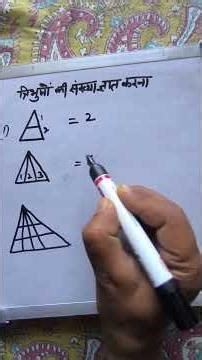 त्रिभुजों की संख्या ज्ञात करना
1) 1 2 = 2
1 2 3 =